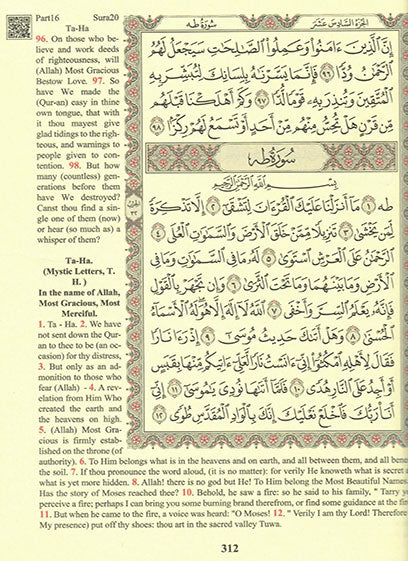 Part16 Sura20
Ta-Ha
96. On those who be-
lieve and work deeds
of righteousness, will
(Allah) Most Gracious
Bestow Love. 97. So
have We made the
(Qur-an) easy in thine
own tongue, that with
it thou mayest give
glad tidings to the righ-
teous, and warnings to
people given to con-
tention. 98. But how
many (countless) gen-
erations before them
have We destroyed?
Canst thou find a sin-
gle one of them (now)
or hear (so much as) a
whisper of them?
Ta-Ha.
(Mystic Letters, T.
H. )
In the name of Allah,
Most Gracious, Most
Merciful.
1. Ta - Ha. 2. We have
not sent down the Qur-
an to thee to be (an oc-
casion) for thy distress,
3. But only as an ad-
monition to those who
fear (Allah) - 4. A rev-
elation from Him Who
created the earth and
the heavens on high.
5. (Allah) Most Gra-
cious is firmly estab-
lished on the throne (of
authority). 6. To Him belongs what is in the heavens and on earth, and all between them, and all bene
the soil. 7. If thou pronounce the word aloud, (it is no matter): for verily He knoweth what is secret a
what is yet more hidden. 8. Allah! there is no god but He! To Him belong the Most Beautiful Names.
Has the story of Moses reached thee? 10. Behold, he saw a fire: so he said to his family, " Tarry y
perceive a fire; perhaps I can bring you some burning brand therefrom, or find some guidance at the fir
11. But when he came to the fire, a voice was heard: "O Moses! 12. " Verily I am thy Lord! Therefore
My presence) put off thy shoes: thou art in the sacred valley Tuwa.
الجزء السادس عشر
سورة طه
إِنَّ الَّذِينَ ءَامَنُوا وَعَمِلُوا الصَّالِحَاتِ سَيَجْعَلُ لَهُمُ
الرَّحْمَٰنُ وُدًّا ٩٦ فَإِنَّمَا يَسَّرْنَاهُ بِلِسَانِكَ لِتُبَشِّرَ بِهِ
الْمُتَّقِينَ وَتُنذِرَ بِهِ قَوْمًا لُّدًّا ٩٧ وَكَمْ أَهْلَكْنَا قَبْلَهُم
مِّن قَرْنٍ هَلْ تُحِسُّ مِنْهُم مِّنْ أَحَدٍ أَوْ تَسْمَعُ لَهُمْ رِكْزًا ٩٨
سورة طه
بِسْمِ اللَّهِ الرَّحْمَٰنِ الرَّحِيمِ
طه ١ مَا أَنزَلْنَا عَلَيْكَ الْقُرْءَانَ لِتَشْقَىٰ ٢ إِلَّا تَذْكِرَةً
لِّمَن يَخْشَىٰ ٣ تَنزِيلًا مِّمَّنْ خَلَقَ الْأَرْضَ وَالسَّمَاوَاتِ الْعُلَى ٤
الرَّحْمَٰنُ عَلَى الْعَرْشِ اسْتَوَىٰ ٥ لَهُ مَا فِي السَّمَاوَاتِ وَمَا فِي
الْأَرْضِ وَمَا بَيْنَهُمَا وَمَا تَحْتَ الثَّرَىٰ ٦ وَإِن تَجْهَرْ بِالْقَوْلِ
فَإِنَّهُ يَعْلَمُ السِّرَّ وَأَخْفَى ٧ اللَّهُ لَا إِلَٰهَ إِلَّا هُوَ لَهُ الْأَسْمَاءُ
الْحُسْنَىٰ ٨ وَهَلْ أَتَاكَ حَدِيثُ مُوسَىٰ ٩ إِذْ رَءَا نَارًا
فَقَالَ لِأَهْلِهِ امْكُثُوا إِنِّي ءَانَسْتُ نَارًا لَّعَلِّي ءَاتِيكُم مِّنْهَا بِقَبَسٍ
أَوْ أَجِدُ عَلَى النَّارِ هُدًى ١٠ فَلَمَّا أَتَاهَا نُودِيَ يَا مُوسَىٰ ١١
إِنِّي أَنَا رَبُّكَ فَاخْلَعْ نَعْلَيْكَ إِنَّكَ بِالْوَادِ الْمُقَدَّسِ طُوًى ١٢
312